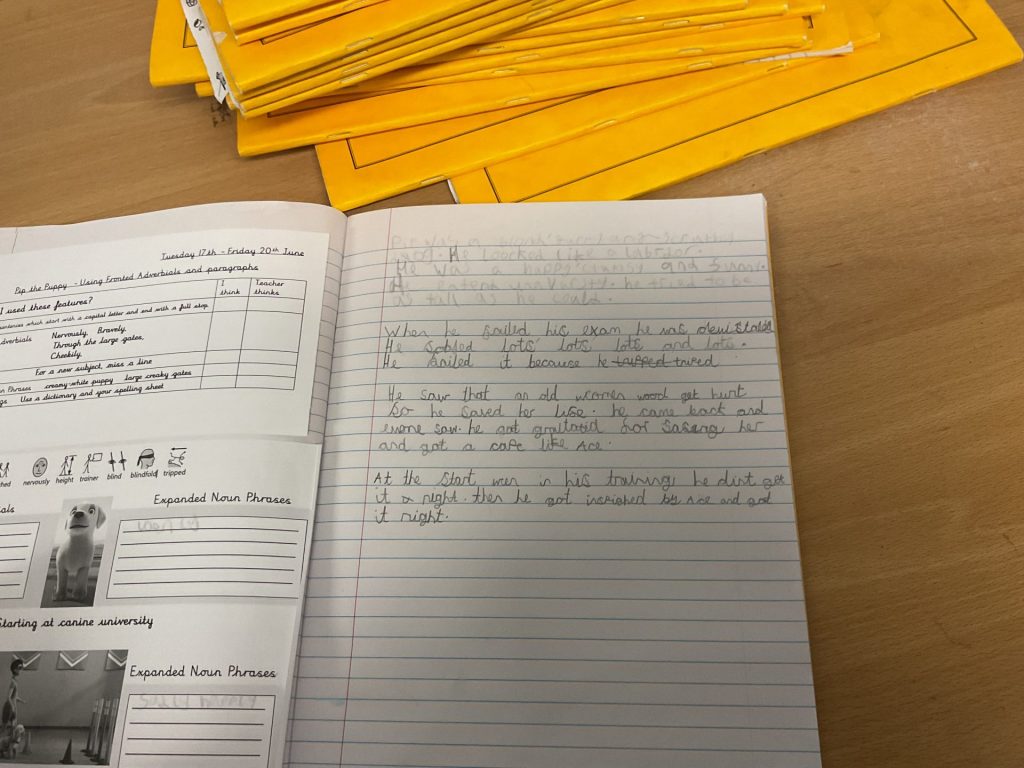 Tuesday 17th - Friday 20th June
Pip the Puppy - Using Fronted Adverbials and paragraphs
I used these features?
I think
Teacher thinks
sentences which start with a capital letter and end with a full stop
adverbials Nervously, Bravely,
Through the large gates,
Cheekily,
For a new subject, miss a line
Phrases creamy-white puppy large creaky gates
Use a dictionary and your spelling sheet
nervously height trainer blind blindfold tripped
Expanded Noun Phrases
Starting at canine university
Expanded Noun Phrases
He loocked like a labrador.
He was a happy and
he tried to be
as tall as he could.
When he sailed his exam he was
He lots lots lots and lots.
He sailed it because he tripped
He saw that an old women wood get hurt
So he saved her life. he came back and
saw. he got for her
and got a cape like Ace.
At the start wen in his training he dint get
it a right. then he got by Ace and got
it right.